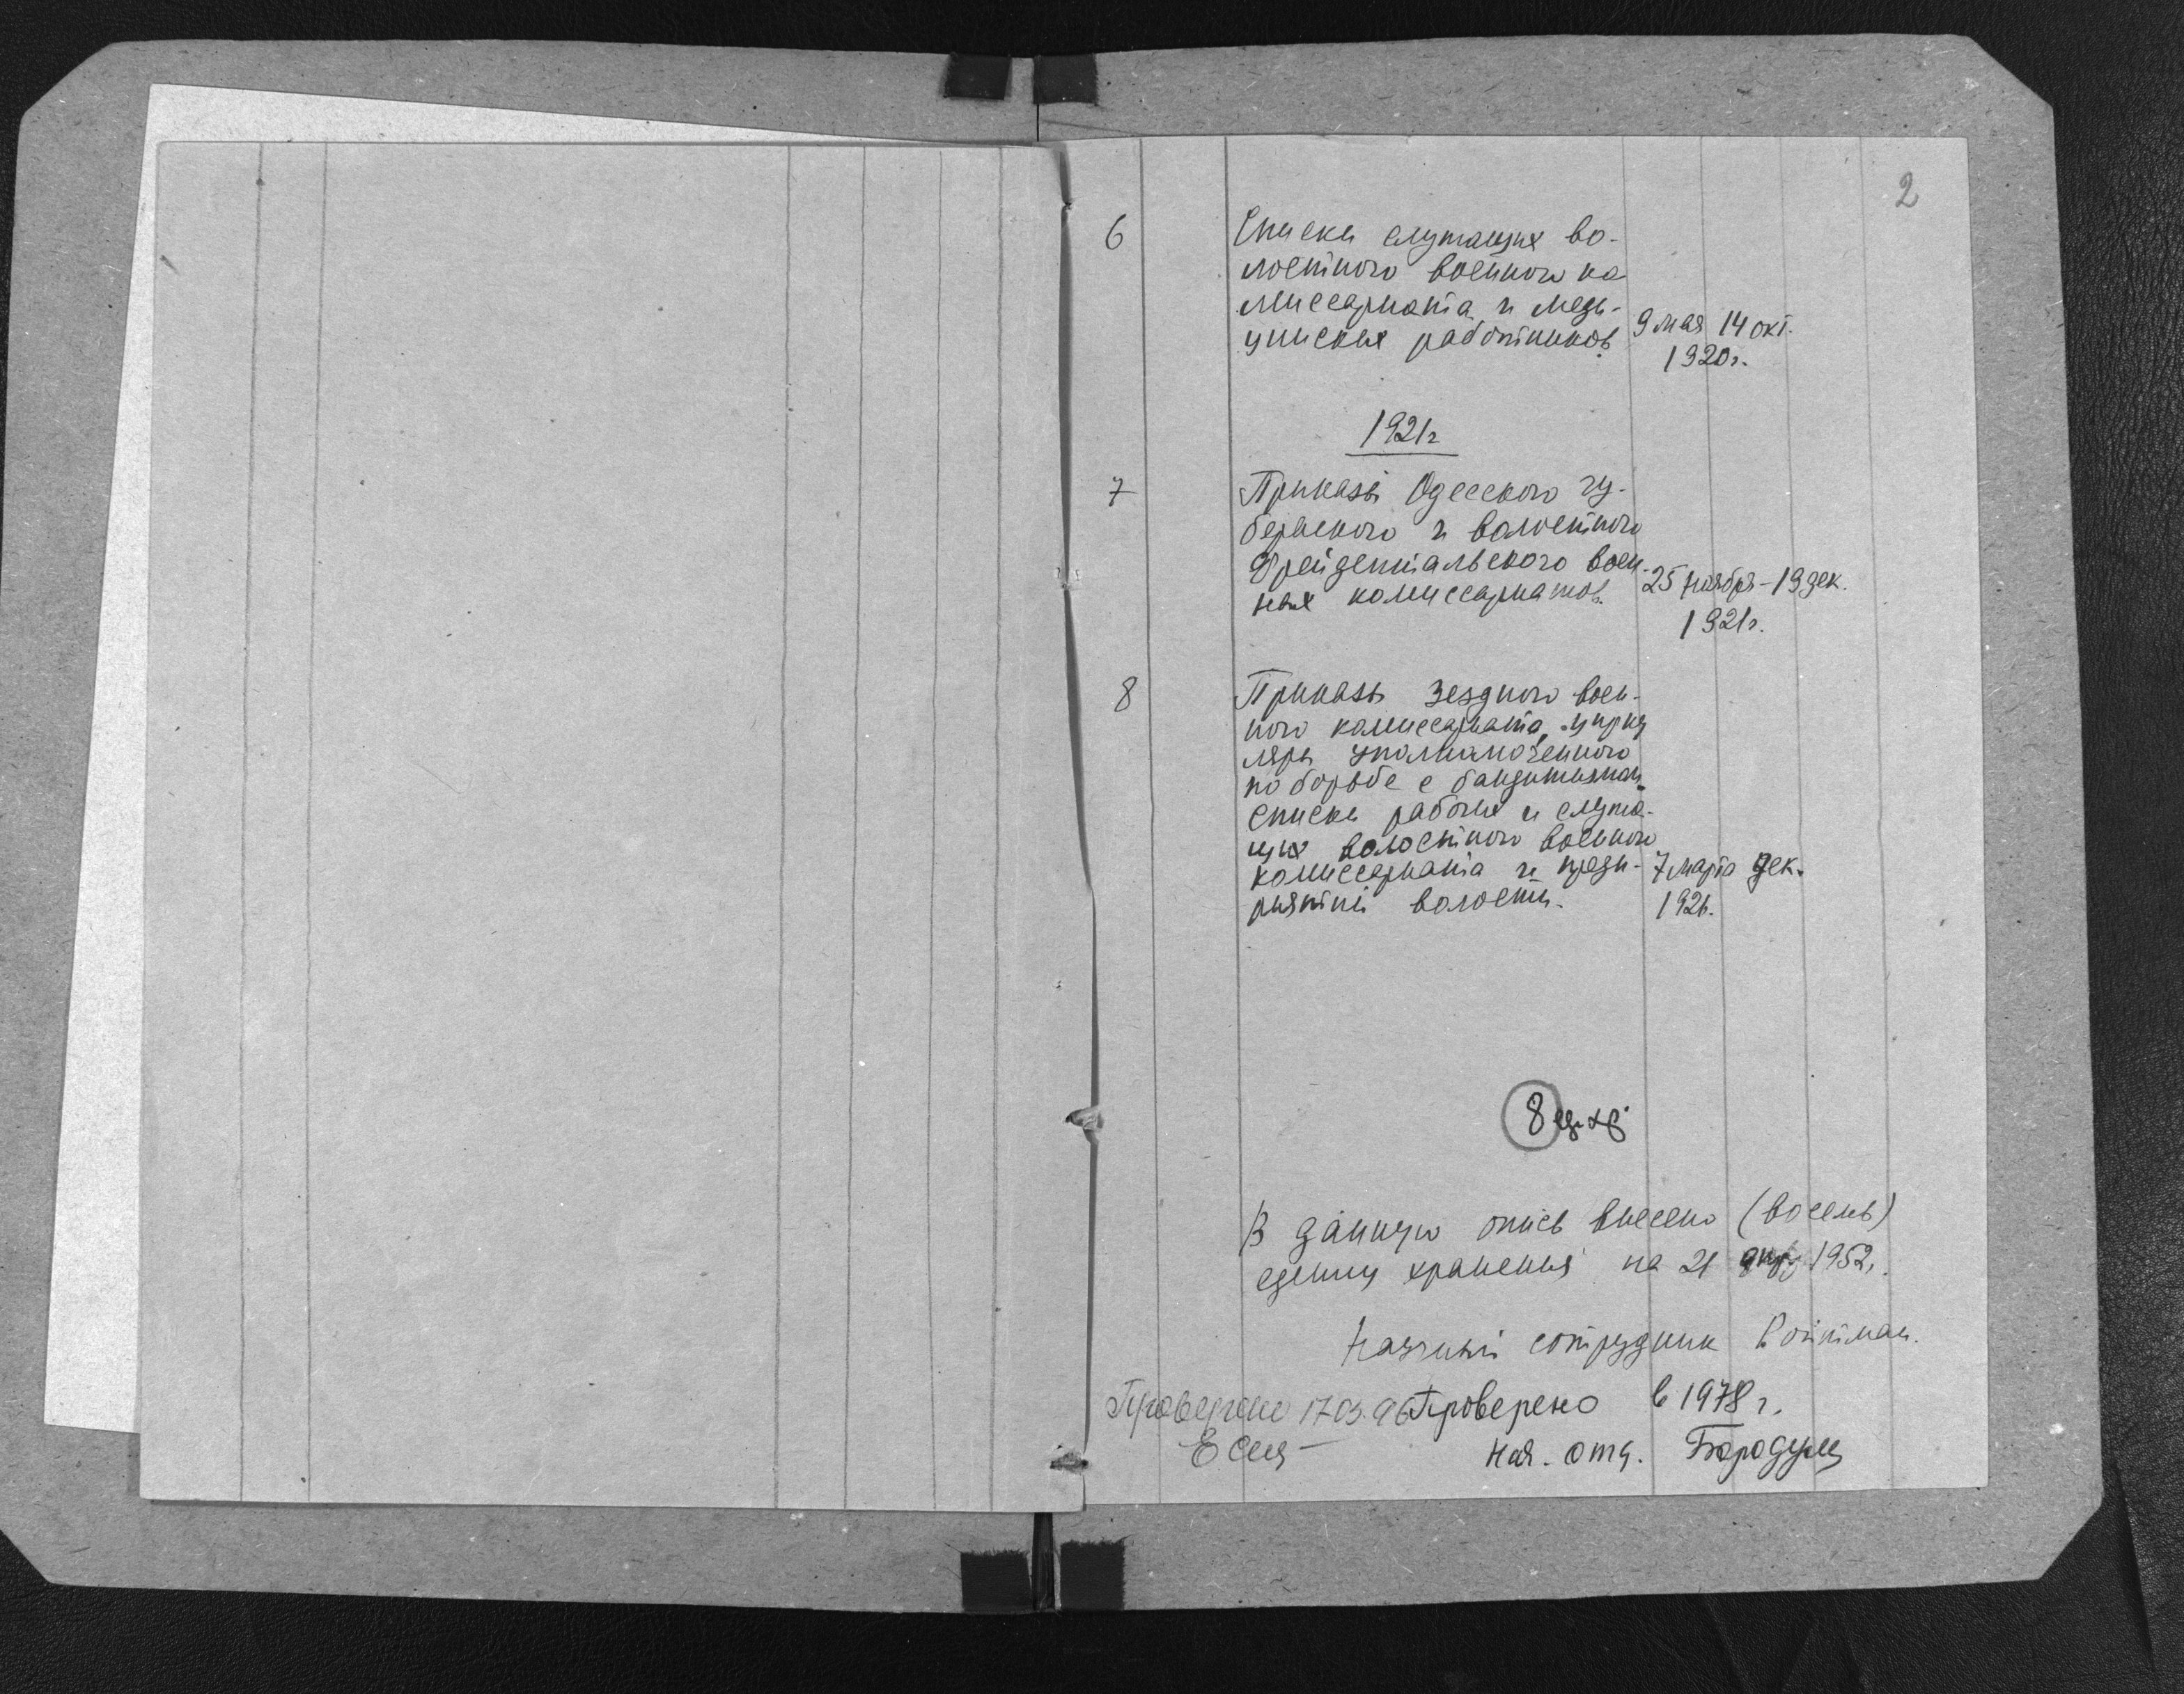 2
6 Списки служащих во-
лостного военного ко-
миссариата и меди-
цинских работников 9 мая 14 окт.
1920 г.
1921 г
7 Приказы Одесского гу-
бернского и волостного
Фрейдентальского воен-
ных комиссариатов. 25 ноября - 19 дек.
1921 г.
8 Приказы уездного воен-
ного комиссариата, цирку
ляры уполномоченного
по борьбе с бандитизмом.
списки рабочих и служа-
щих волостного военного
комиссариата и пред-
приятий волости. 7 марта дек.
1921.
8 ед. хр
В данную опись внесено (восемь)
единиц хранения на 21 1952 г.
Научный сотрудник Войтман.
Проверено 17.03.96 Проверено в 1978 г.
Нач. отд.